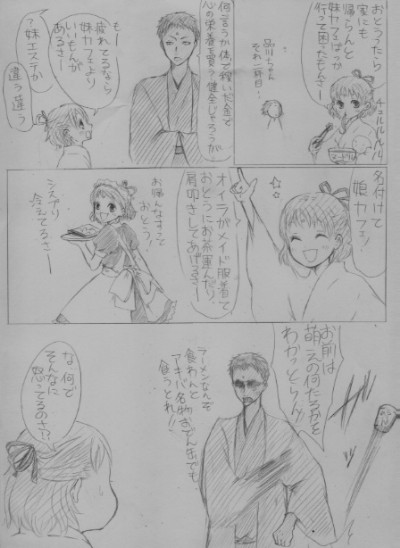 おとうたら
家にも
帰らんと
妹カフェばっか
行って困ったもんさー
チュルルルル
品川ちゃん
それ二杯目!
何言うか体で稼いだ金で
心の栄養を買う健全じゃろうが
もー
疲れてるなら
妹カフェより
いいもんが
あるさー
?妹エステか
違う違う
名付けて
娘カフェッ
オイラがメイド服着て
おとうにお茶運んだり
肩叩きしてあげるさー
お帰んなすって
おとう!
シスプリ
冷えてるさー
お前は
萌えの何たるかを
わかっとらん!!
ラーメンなんぞ
食わんと
アキバ名物おでん缶でも
食うとれ!!
な、何で
そんなに
怒ってるのさ!?